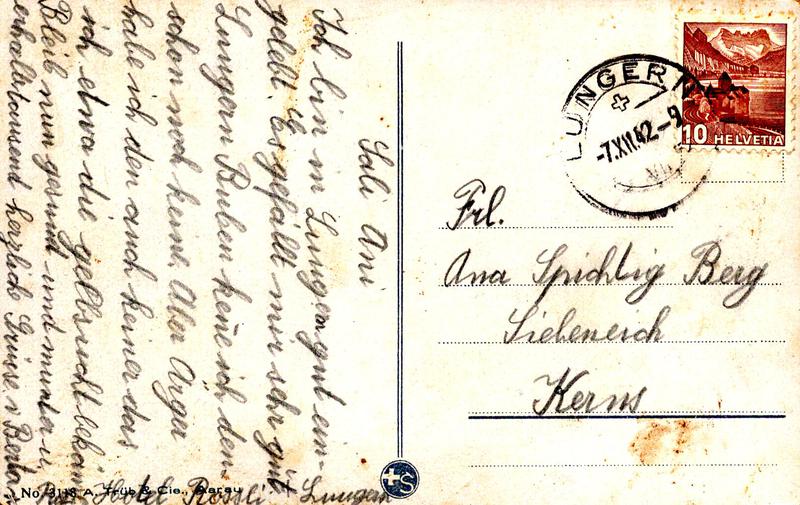 Soli Ani
Ich bin in Lungern gut ein-
geldt. Es gefällt mir sehr gut
Lungern Buben kene ich den-
schon noch keine. Aber Arger
habe ich den auch keiner das
ich etwa die gelbsucht bekam
Bleib nun gesund und munter u.
erhalte tousent herzliche Grüse v. Berta
Hotel Rössli Lungern
No. 3118 A. Trüb & Cie., Aarau
+S
LUNGERN
-7.XII.42.-9
10 HELVETIA
Frl.
Ana Spichtig Berg
Siebeneich
Kerns